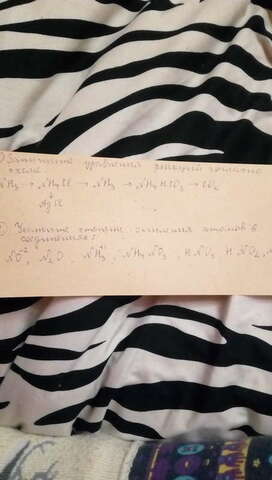 ) Запишите уравнения реакций согласно
схеме:
NH3 → NH4Cl → NH3 → NH4HCO3 → CO2
↓
AgCl
2) Укажите степень окисления атомов в
соединениях:
NO⁻², N2O, NH3, NH4NO3, HNO3 HNO2,